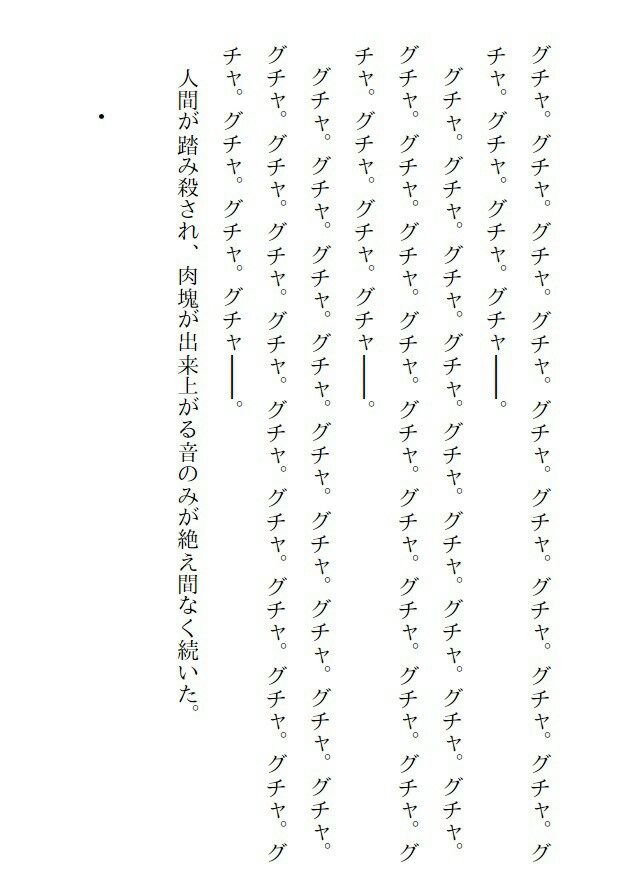 グチャ。グチャ。グチャ。グチャ。グチャ。グチャ。グチャ。グチャ。グチャ。グ
チャ。グチャ。グチャ。グチャ――。
　グチャ。グチャ。グチャ。グチャ。グチャ。グチャ。グチャ。グチャ。グチャ。
グチャ。グチャ。グチャ。グチャ。グチャ。グチャ。グチャ。グチャ。グチャ。グ
チャ。グチャ。グチャ。グチャ――。
　グチャ。グチャ。グチャ。グチャ。グチャ。グチャ。グチャ。グチャ。グチャ。
グチャ。グチャ。グチャ。グチャ。グチャ。グチャ。グチャ。グチャ。グチャ。グ
チャ。グチャ。グチャ。グチャ――。
　人間が踏み殺され、肉塊が出来上がる音のみが絶え間なく続いた。
・